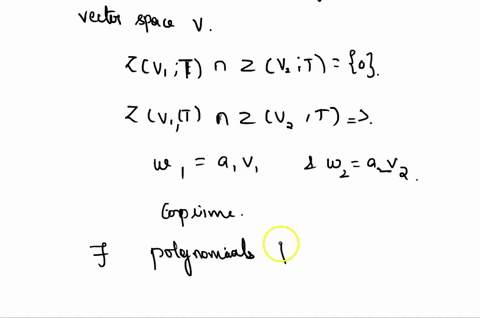 vector space V.
Z(V₁;T) ∩ Z(V₂;T) = {0}.
Z(V₁,T) ∩ Z(V₂,T) ⇒.
w₁ = a₁v₁ & w₂ = a₂v₂.
Coprime.
∃ polynomials